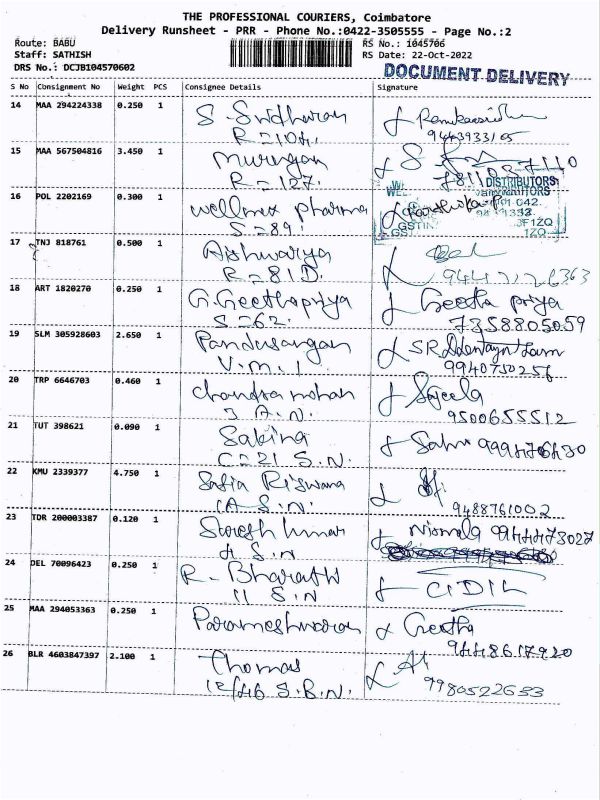 THE PROFESSIONAL COURIERS, Coimbatore
Delivery Runsheet - PRR - Phone No.:0422-3505555 - Page No.:2
Route: BABU
Staff: SATHISH
DRS No.: DCJB104570602
RS No.: 1045706
RS Date: 22-Oct-2022
DOCUMENT DELIVERY
S No Consignment No Weight PCS Consignee Details Signature
14 MAA 294224338 0.250 1 S. Sridharan
R=104.
15 MAA 567504816 3.450 1 Murugan
R=127.
16 POL 2202169 0.300 1 Wellmex pharma
S=89.
DISTRIBUTORS
17 TNJ 818761 0.500 1 Aishwarya
R=81D.
18 ART 1820270 0.250 1 G. Geethapriya Geetha priya
S=62. 7358805059
19 SLM 305928603 2.650 1 Pandurangan
V.M.1 9940750256
20 TRP 6646703 0.460 1 Chandra mohan Sajeela
3 A.N. 9500655512
21 TUT 398621 0.090 1 Sakina
C=21 S.N.
22 KMU 2339377 4.750 1 Safia Riswana
1A S.N. 9488761002
23 TDR 200003387 0.120 1 Suresh kumar Nirmala 9944473027
4 S.N
24 DEL 70096423 0.250 1 R. Bharath
11 S.N
25 MAA 294053363 0.250 1 Parameshwaran Geetha
9448617920
26 BLR 4603847397 2.100 1 Thomas
12/46 S.B.N. 9980522633